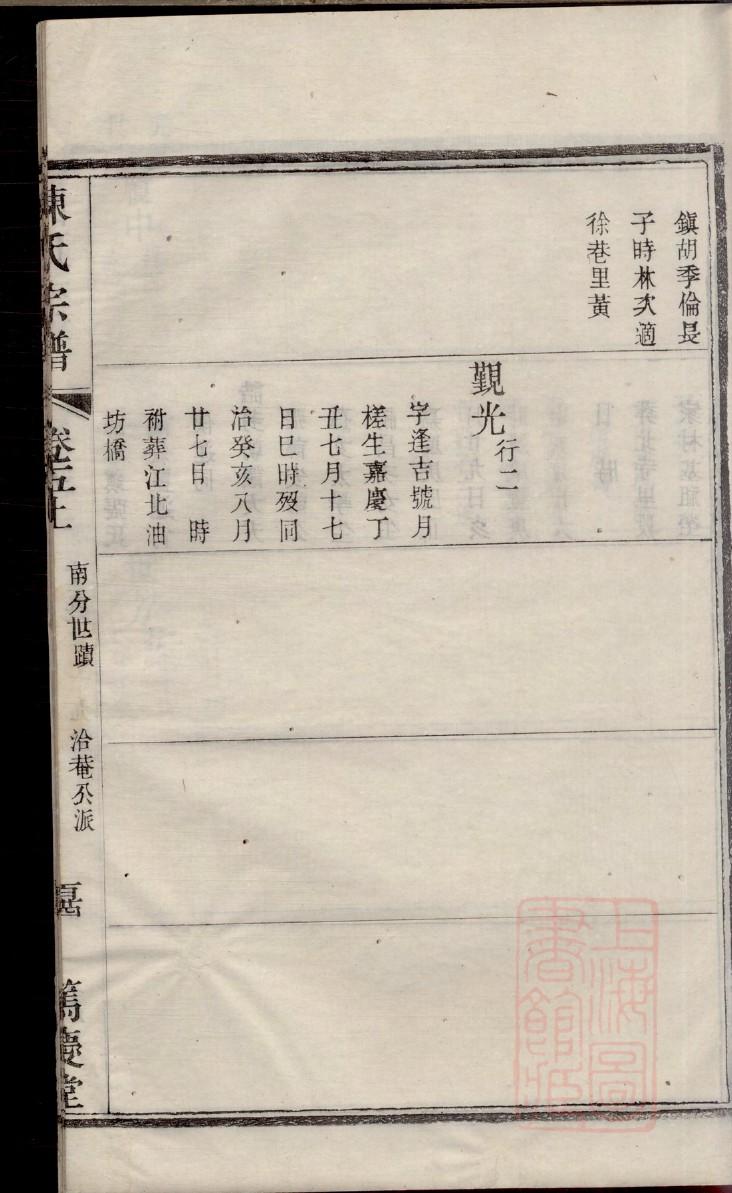 鎮胡季倫長
子時林次適
徐巷里黃
觀光行二
字逢吉號月
槎生嘉慶丁
丑七月十七
日巳時歿同
治癸亥八月
廿七日 時
祔葬江北油
坊橋
陳氏宗譜 卷五上 南分世蹟 九 洽菴公派 篤慶堂
上海圖
書館藏